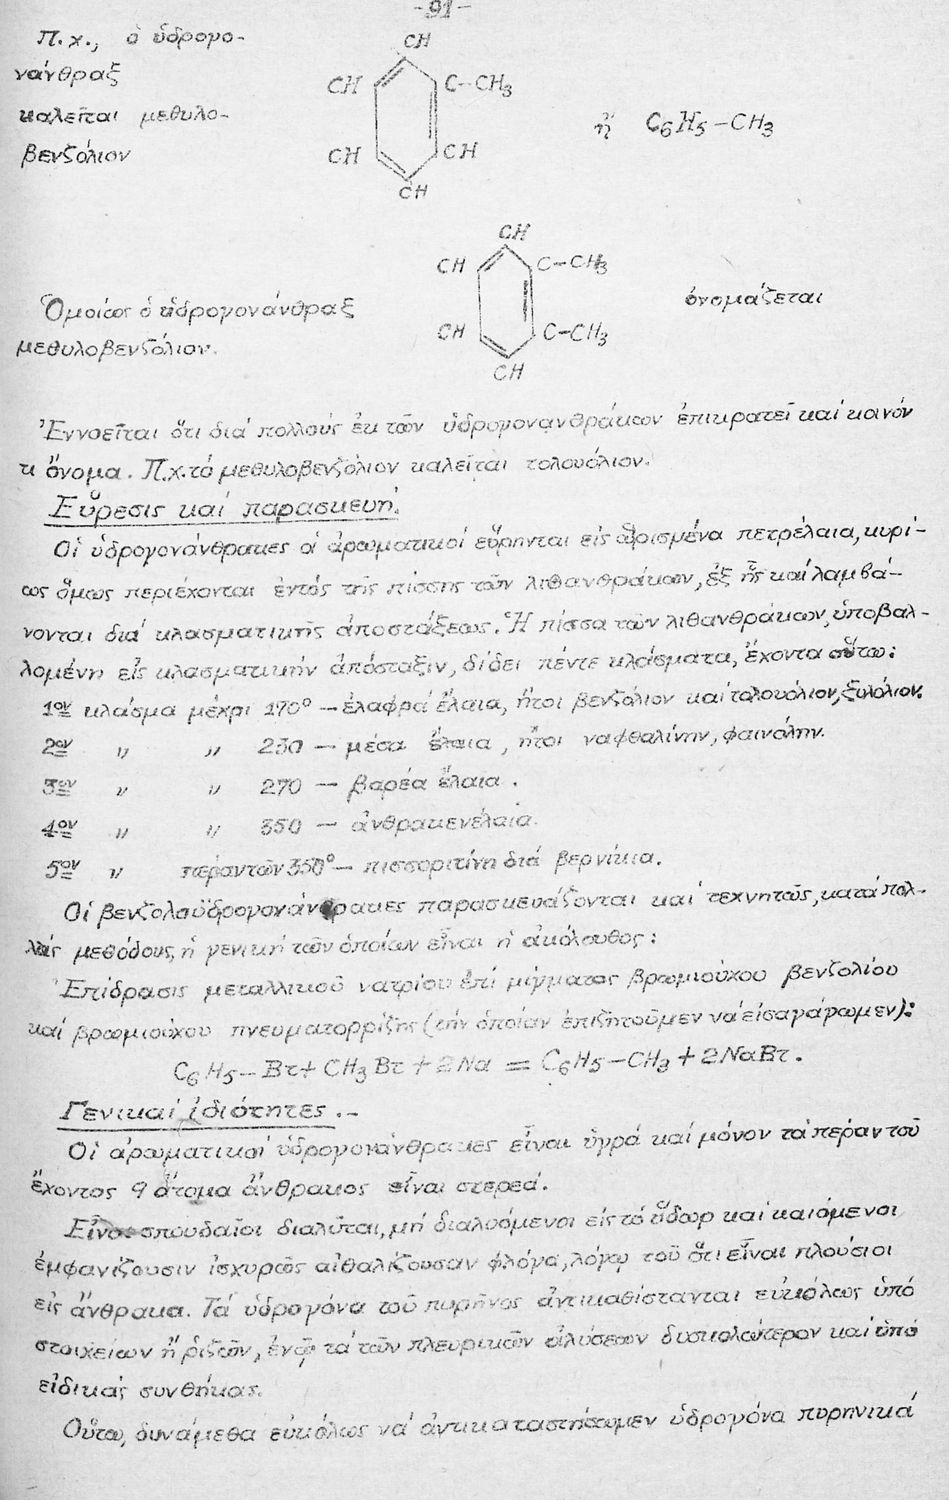 -91-
Π.χ., ὁ ὑδρογο-
νάνθραξ
καλεῖται μεθυλο-
βενζόλιον
CH
CH C-CH3
CH CH
CH
ἤ C6H5-CH3
CH
CH C-CH3
CH C-CH3
CH
Ὁμοίως ὁ ὑδρογονάνθραξ ὀνομάζεται
μεθυλοβενζόλιον.
Ἐννοεῖται ὅτι διά πολλούς ἐκ τῶν ὑδρογονανθράκων ἐπικρατεῖ καί κοινόν
τι ὄνομα. Π.χ. τό μεθυλοβενζόλιον καλεῖται τολουόλιον.
Εὕρεσις καί παρασκευή.
Οἱ ὑδρογονάνθρακες οἱ ἀρωματικοί εὕρηνται εἰς ὡρισμένα πετρέλαια, κυρί-
ως ὅμως περιέχονται ἐντός τῆς πίσσης τῶν λιθανθράκων, ἐξ ἧς καί λαμβά-
νονται διά κλασματικῆς ἀποστάξεως. Ἡ πίσσα τῶν λιθανθράκων, ὑποβαλ-
λομένη εἰς κλασματικήν ἀπόσταξιν, δίδει πέντε κλάσματα, ἔχοντα οὕτω:
1ον κλάσμα μέχρι 170° — ἐλαφρά ἔλαια, ἤτοι βενζόλιον καί τολουόλιον, ξυλόλιον.
2ον " " 230 — μέσα ἔλαια, ἤτοι ναφθαλίνην, φαινόλην.
3ον " " 270 — βαρέα ἔλαια.
4ον " " 350 — ἀνθρακενέλαια.
5ον " πέραν τῶν 350° — πισσοριτίνη διά βερνίκια.
Οἱ βενζολοϋδρογονάνθρακες παρασκευάζονται καί τεχνητῶς, κατά πολ-
λάς μεθόδους, ἡ γενική τῶν ὁποίων εἶναι ἡ ἀκόλουθος:
Ἐπίδρασις μεταλλικοῦ νατρίου ἐπί μίγματος βρωμιούχου βενζολίου
καί βρωμιούχου πνευματορρίζης (τήν ὁποίαν ἐπιζητοῦμεν νά εἰσαγάγωμεν):
C6H5-Br + CH3Br + 2Na = C6H5-CH3 + 2NaBr.
Γενικαί ἰδιότητες.-
Οἱ ἀρωματικοί ὑδρογονάνθρακες εἶναι ὑγρά καί μόνον τά πέραν τοῦ
ἔχοντος 9 ἄτομα ἄνθρακος εἶναι στερεά.
Εἶναι σπουδαῖοι διαλύται, μή διαλυόμενοι εἰς τό ὕδωρ καί καιόμενοι
ἐμφανίζουσιν ἰσχυρῶς αἰθαλίζουσαν φλόγα, λόγῳ τοῦ ὅτι εἶναι πλούσιοι
εἰς ἄνθρακα. Τά ὑδρογόνα τοῦ πυρῆνος ἀντικαθίστανται εὐκόλως ὑπό
στοιχείων ἤ ῥιζῶν, ἐνῷ τά τῶν πλευρικῶν ἁλύσεων δυσκολώτερον καί ὑπό
εἰδικάς συνθήκας.
Οὕτω, δυνάμεθα εὐκόλως νά ἀντικαταστήσωμεν ὑδρογόνα πυρηνικά